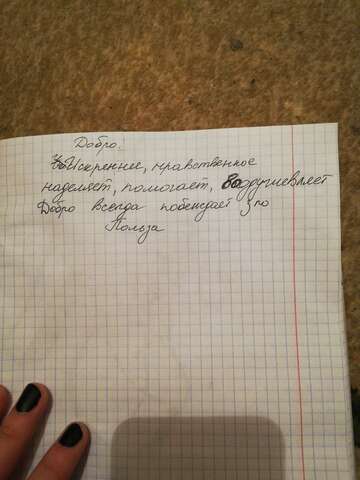 Добро.
Искреннее, нравственное
наделяет, помогает, воодушевляет
Добро всегда побеждает зло
Польза